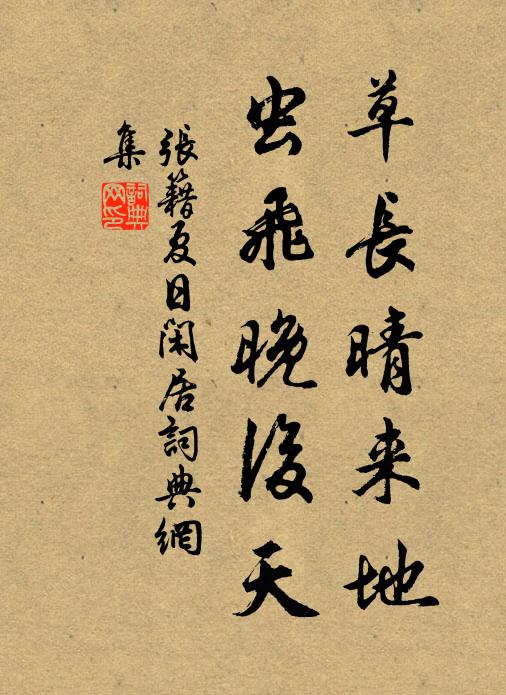 草長晴来地
虫飛晚後天
張籍夏日閑居詞典網
集
詞典
网印